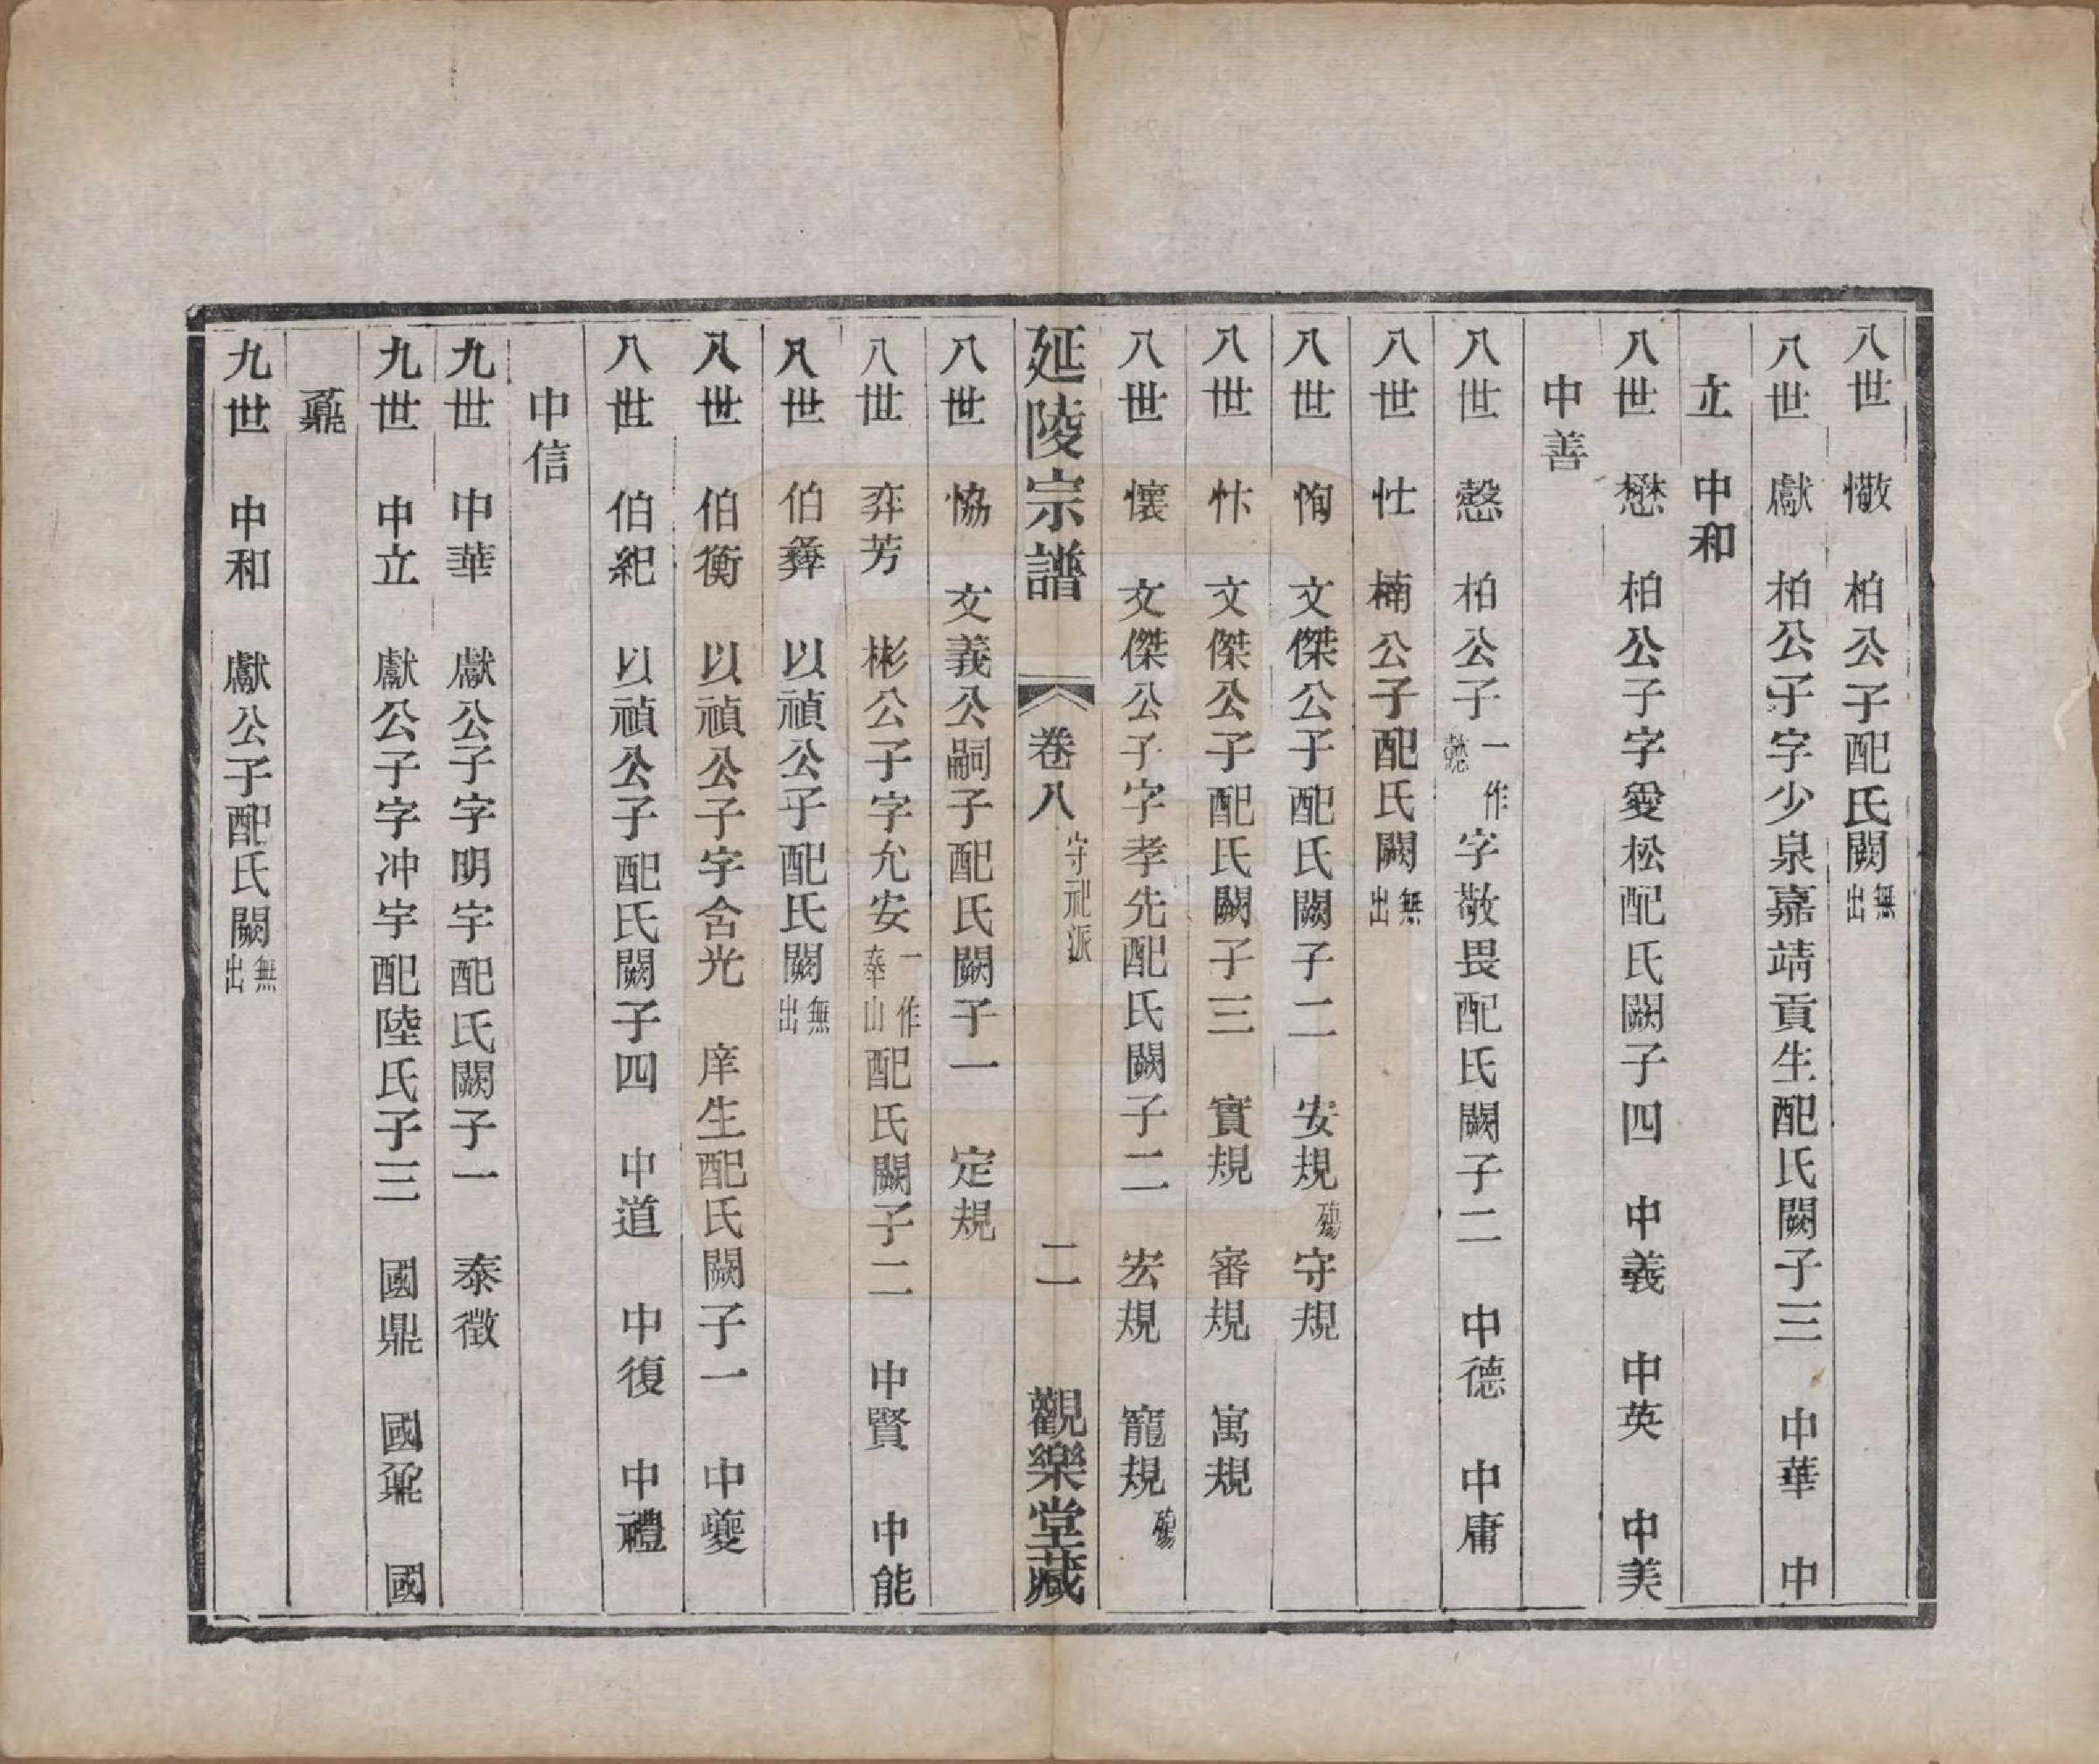 八世 憿 柏公子配氏闕無出
八世 獻 柏公子字少泉嘉靖貢生配氏闕子三 中華 中
立 中和
八世 懋 柏公子字愛松配氏闕子四 中義 中英 中美
中善
八世 愨 柏公子一作字敬畏配氏闕子二 中德 中庸
八世 忕 楠公子配氏闕無出
八世 恂 文傑公子配氏闕子二 安規殤 守規
八世 忭 文傑公子配氏闕子三 實規 審規 寓規
八世 懷 文傑公子字孝先配氏闕子二 宏規 寵規殤
延陵宗譜 卷八 守祀派 二 觀樂堂藏
八世 恊 文義公嗣子配氏闕子一 定規
八世 弈芳 彬公子字允安一作奉山配氏闕子二 中賢 中能
八世 伯彝 以禎公子配氏闕無出
八世 伯衡 以禎公子字含光 庠生配氏闕子一 中夔
八世 伯紀 以禎公子配氏闕子四 中道 中復 中禮
中信
九世 中華 獻公子字明宇配氏闕子一 泰徵
九世 中立 獻公子字冲宇配陸氏子三 國鼎 國鼐 國
鼒
九世 中和 獻公子配氏闕無出